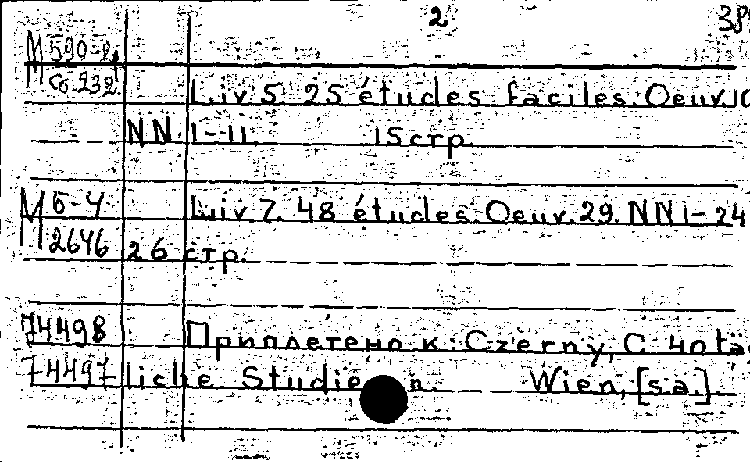 2 38
М 590-2
Со. 232
Liv. 5. 25 études faciles. Oeuv. 10
NN. 1-11. 15 стр.
М Б-4
2646
Liv. 7. 48 études. Oeuv. 29. NN 1-24
26 стр.
74498
Приплетено к: Czerny, C. 40 tä-
74497 liche Studien. Wien, [s.a.].